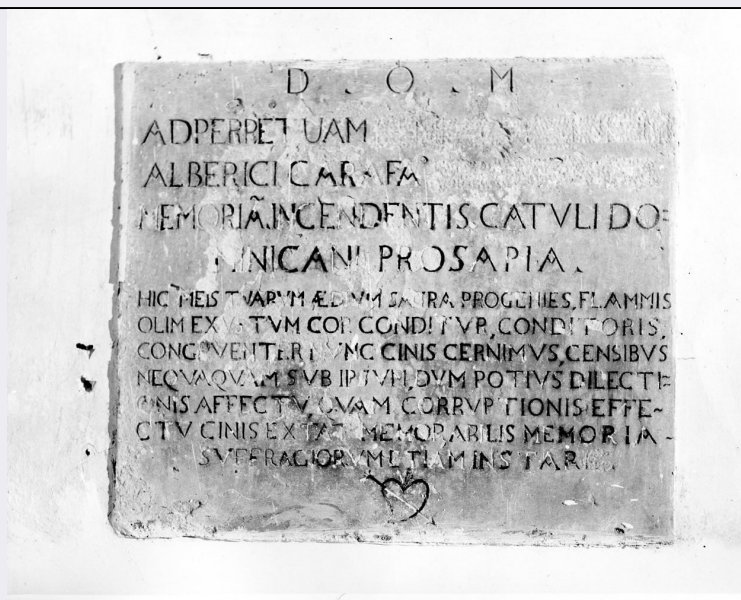 D . O . M
ADPERPETUAM
ALBERICI CARAFA
MEMORIÃ.INCENDENTIS CATVLI DO=
MINICANI PROSAPIA.
HIC MEIS TVARVM ÆDIVM SACRA PROGENIES, FLAMMIS
OLIM EXVSTVM COR CONDITVR, CONDITORIS,
CONGRVENTER HVNC CINIS CERNIMVS, CENSIBVS
NEQVAQVAM SVB DVM POTIVS DILECTI=
ONIS AFFECTV, QVAM CORRVPTIONIS EFFE~
CTV CINIS EXTAT MEMORABILIS MEMORIA-
SVFFRAGIORVM ETIAM INSTAR